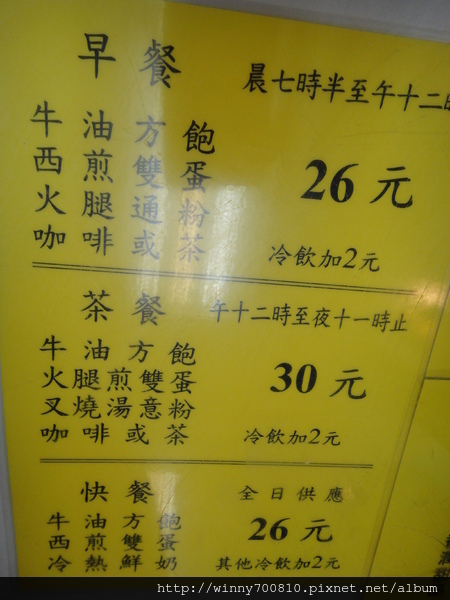 早餐
晨七時半至午十二時
牛油方飽
西煎雙蛋
火腿通粉
咖啡或茶
26元
冷飲加2元
茶餐
午十二時至夜十一時止
牛油方飽
火腿煎雙蛋
叉燒湯意粉
咖啡或茶
30元
冷飲加2元
快餐
全日供應
牛油方飽
西煎雙蛋
冷熱鮮奶
26元
其他冷飲加2元
http://winny700810.pixnet.net/album